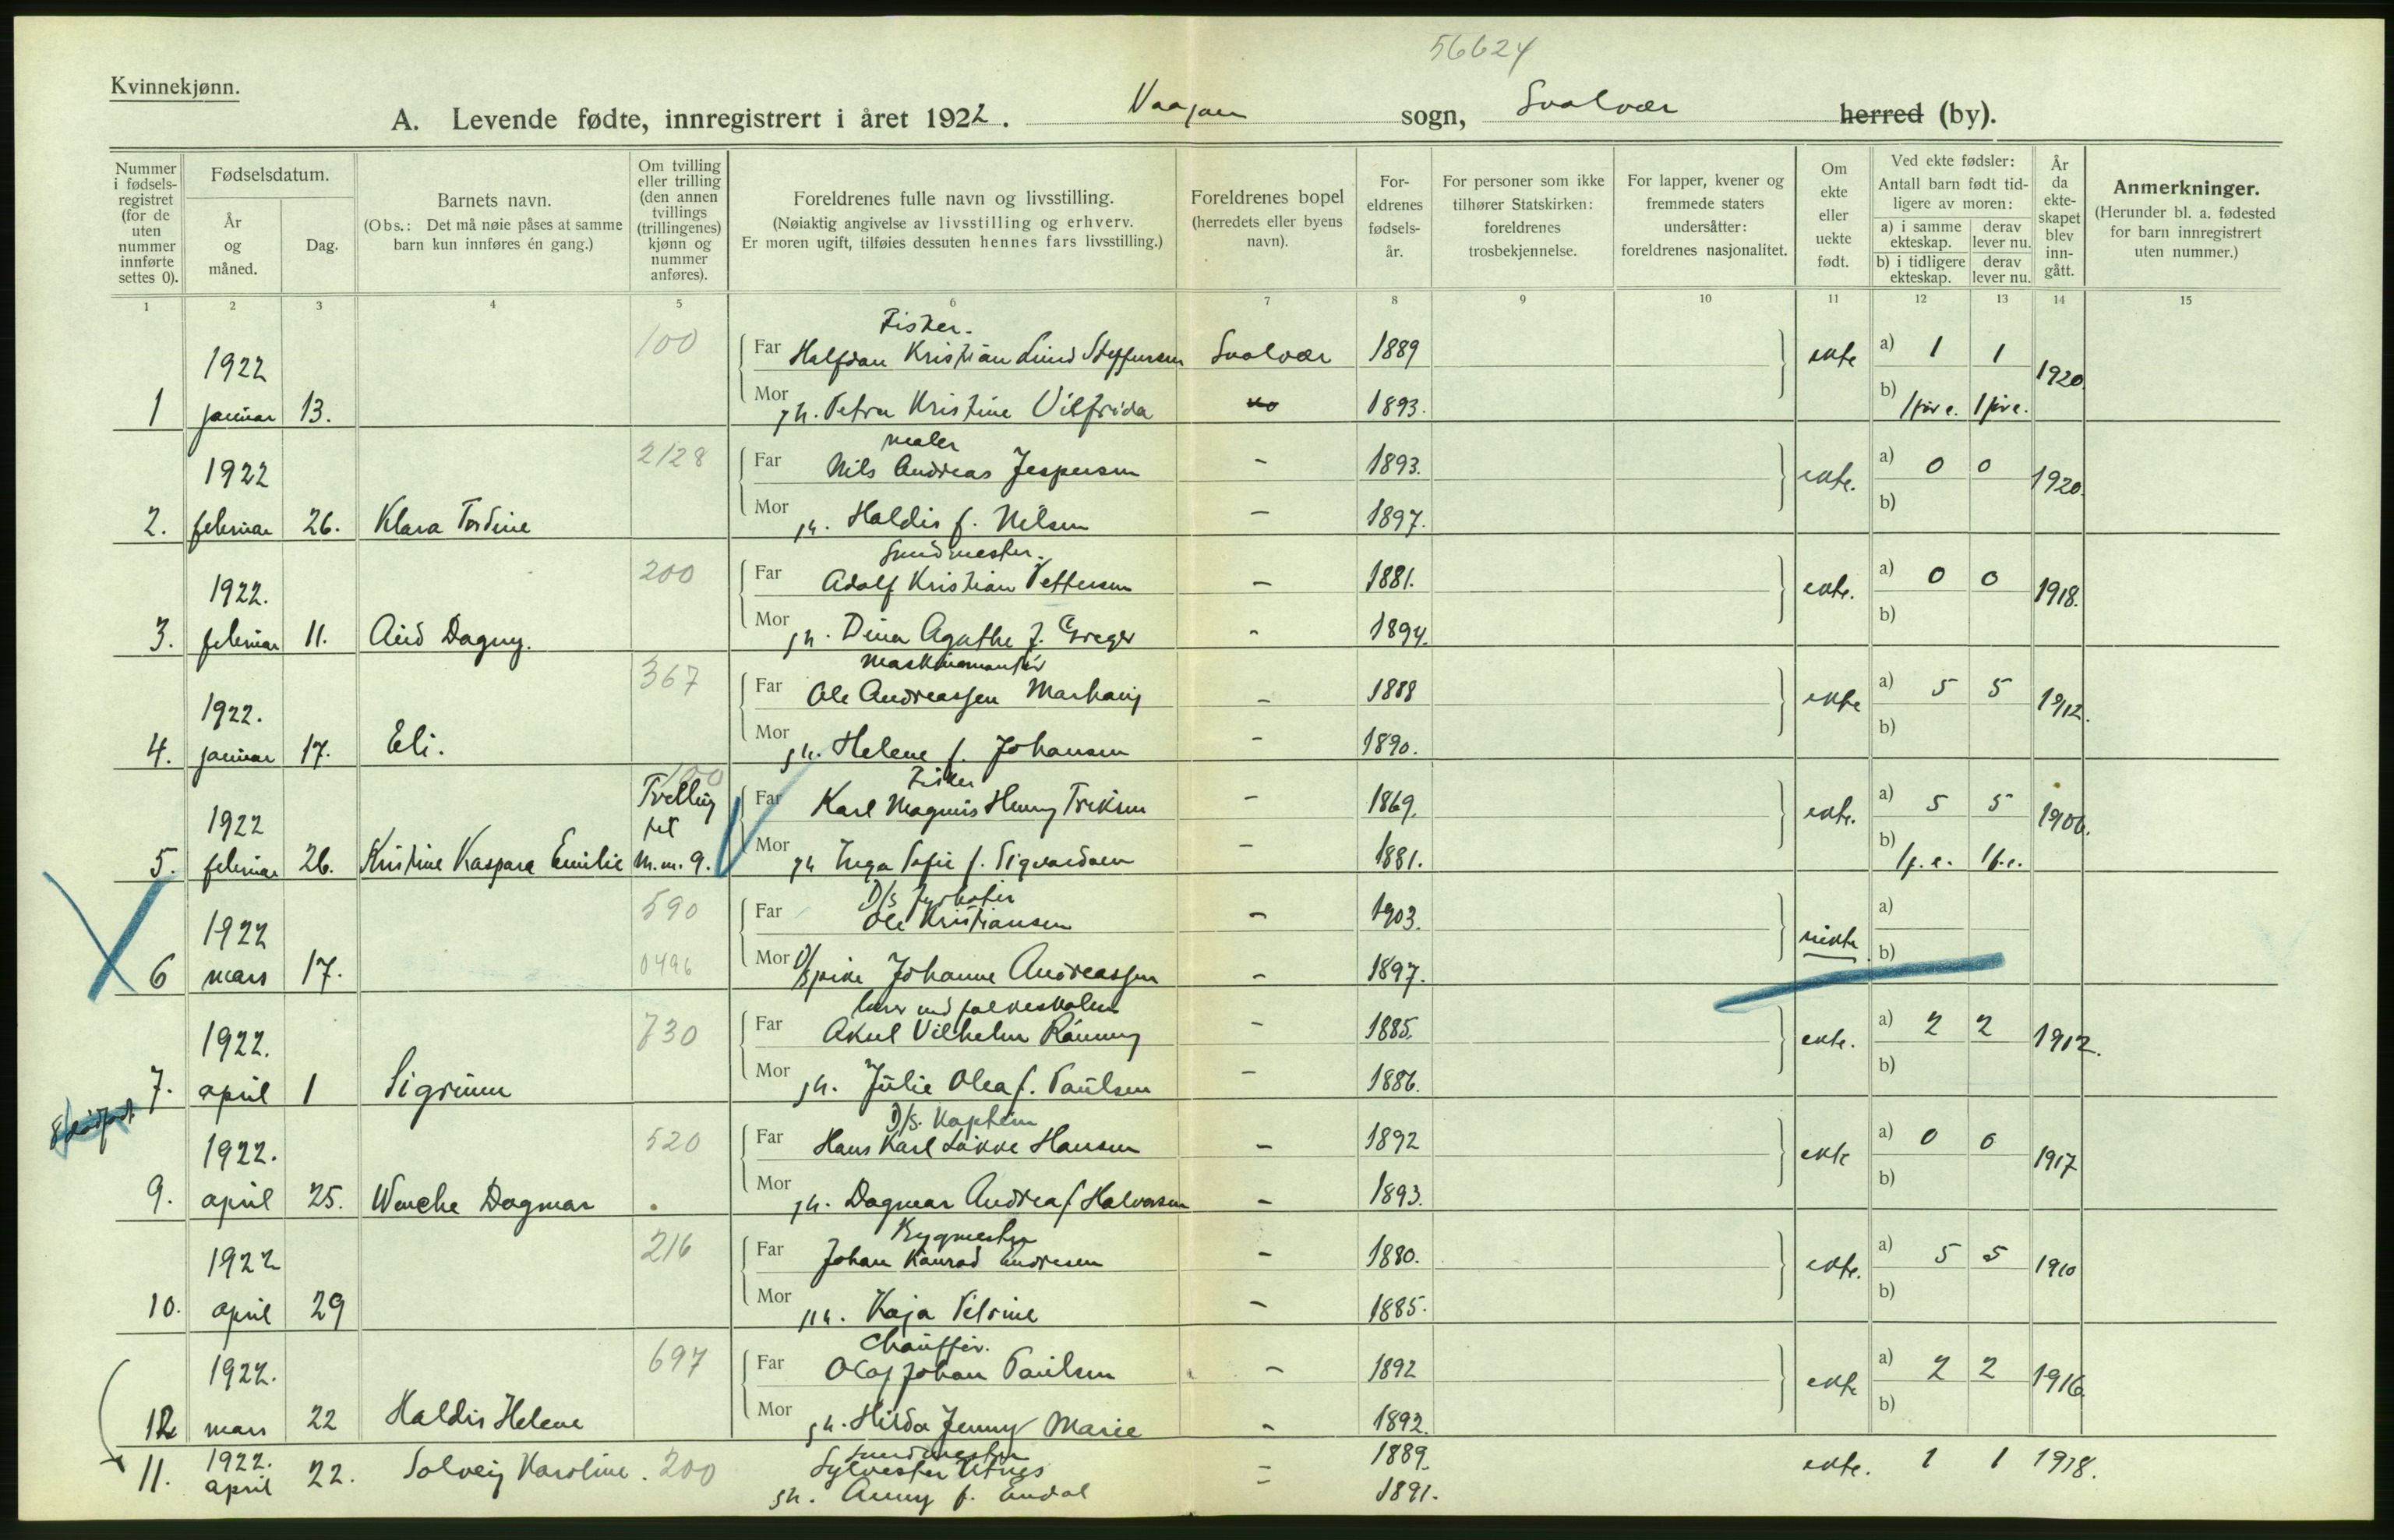 56624
Kvinnekjønn.
A. Levende fødte, innregistrert i året 1922. Vaagan sogn, Svolvær herred (by).
Nummer i fødselsregistret (for de uten nummer innførte settes 0).
Fødselsdatum.
År og måned.
Dag.
Barnets navn.
(Obs.: Det må nøie påses at samme barn kun innføres én gang.)
Om tvilling eller trilling (den annen tvillings (trillingenes) kjønn og nummer anføres).
Foreldrenes fulle navn og livsstilling.
(Nøiaktig angivelse av livsstilling og erhverv.
Er moren ugift, tilføies dessuten hennes fars livsstilling.)
Foreldrenes bopel (herredets eller byens navn).
Foreldrenes fødselsår.
For personer som ikke tilhører Statskirken: foreldrenes trosbekjennelse.
For lapper, kvener og fremmede staters undersåtter: foreldrenes nasjonalitet.
Om ekte eller uekte født.
Ved ekte fødsler:
Antall barn født tidligere av moren:
a) i samme ekteskap.
derav lever nu.
b) i tidligere ekteskap.
derav lever nu.
År da ekteskapet blev inngått.
Anmerkninger.
(Herunder bl. a. fødested for barn innregistrert uten nummer.)
1 2 3 4 5 6 7 8 9 10 11 12 13 14 15
100 Fisker.
1922 Far Halfdan Kristian Lund Steffensen Svolvær 1889 ekte a) 1 1 1920.
1 januar 13. Mor gh. Petra Kristine Vilfrida 1893. b) 1 før e. 1 før e.
2128 maler
1922 Far Nils Andreas Jespersen - 1893. ekte. a) 0 0 1920.
2. februar 26. Klara Tordine Mor gh. Haldis f. Nilsen - 1897. b)
200 Sundmester.
1922. Far Adolf Kristian Pettersen - 1881. ekte. a) 0 0 1918.
3. februar 11. Aud Dagny. Mor gh. Dina Agathe f. Greger - 1894. b)
367 Maskinmontør
1922. Far Ole Andreassen Marhaug - 1888 ekte a) 5 5 1912.
4. januar 17. Eli. Mor gh. Helene f. Johansen - 1890. b)
100 Tvilling Fisker
1922 til Far Karl Magnus Henry - 1869. ekte. a) 5 5 1906.
5. februar 26. Kristine Kaspara Emilie M.m. 9. Mor gh Inga Sofie f. Sigvardsen - 1881. b) 1 f. e. 1 f. e.
590 D/s fyrbøter
1922 Far Ole Kristiansen - 1903. uekte a)
6 mars 17. 0496 Mor D/s pike Johanne Andreassen - 1897. b)
730 lærer ved folkeskolen
1922. Far Aksel Vilhelm Rånning - 1885. ekte. a) 2 2 1912.
7. april 1 Sigrunn Mor gh. Julie Olea f. Paulsen - 1886. b)
8 dødfødt
520 D/s. Kaptein
1922. Far Hans Karl Løkke Hansen - 1892 ekte a) 0 0 1917
9. april 25. Wenche Dagmar Mor gh. Dagmar Andrea f. Halvorsen - 1893. b)
216 Bygmester
1922 Far Johan Konrad Andresen - 1880. ekte. a) 5 5 1910
10. april 29 Mor gh. Kaja Petrine - 1885. b)
697 Chauffør.
1922. Far Olaf Johan Paulsen - 1892 ekte a) 2 2 1916
12 mars 22 Haldis Helene Mor gh. Hilda Jenny Marie - 1892. b)
Sundmester
11. 1922. april 22. Solveig Karoline. 200 Sylvester Utnes - 1889. ekte. 1 1 1918.
gh. Anny f. Endal - 1891.